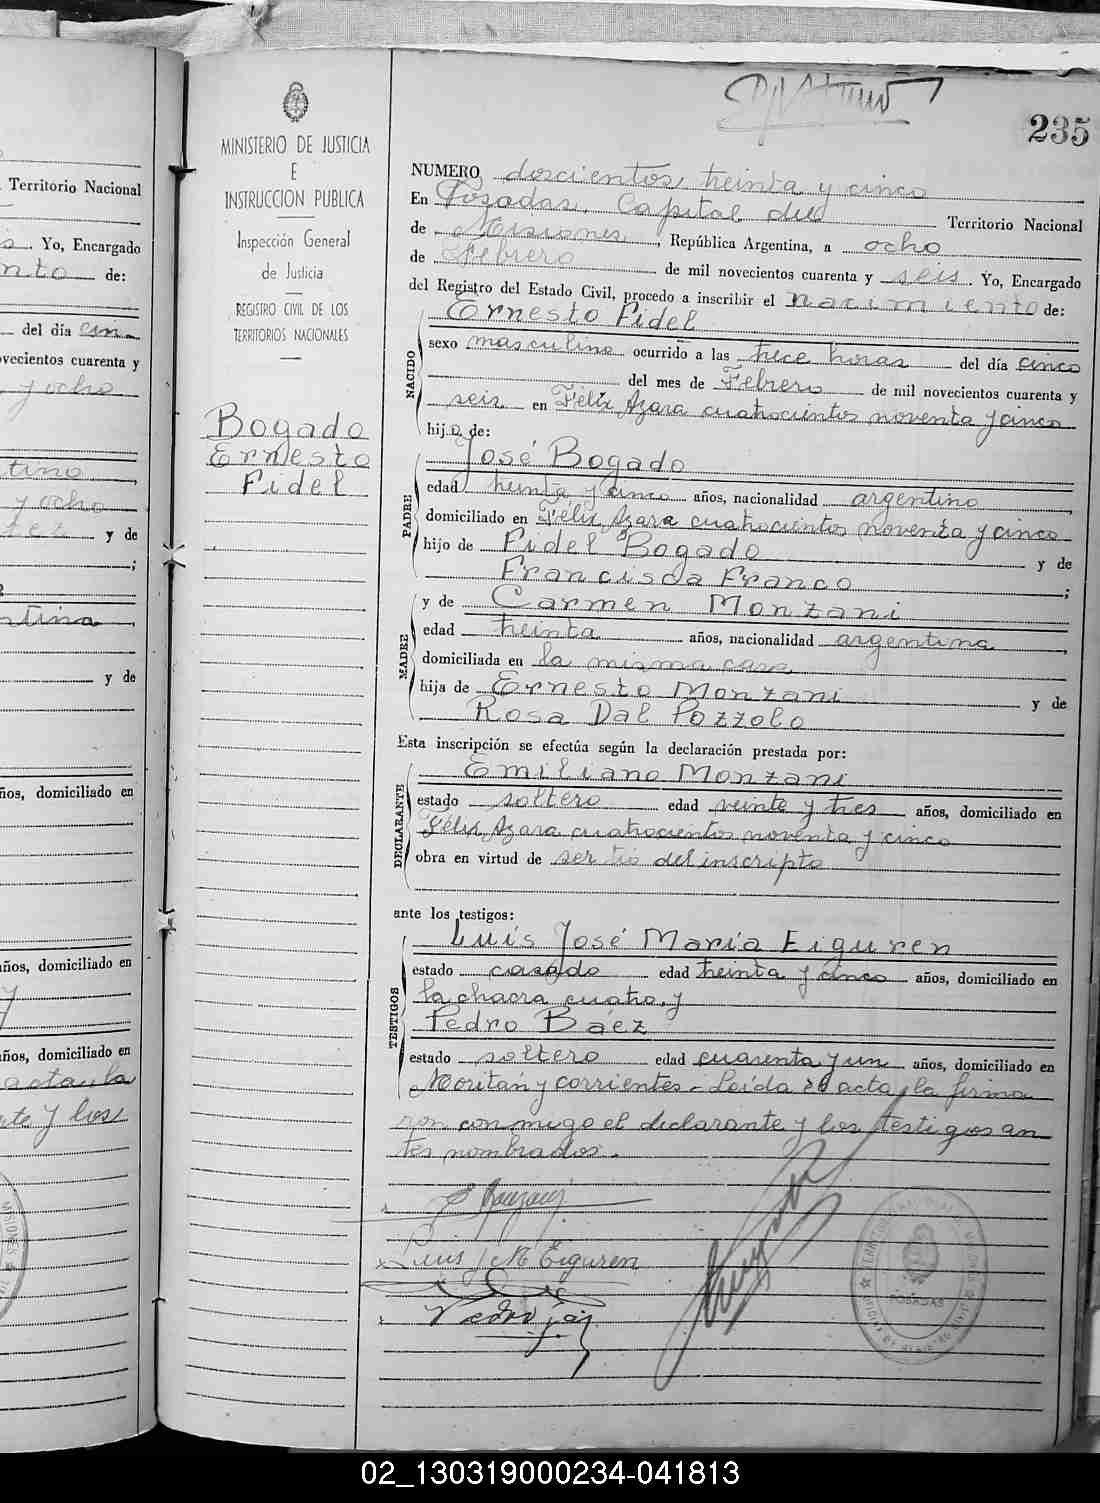 235
MINISTERIO DE JUSTICIA
E
INSTRUCCION PUBLICA
Inspección General
de Justicia
REGISTRO CIVIL DE LOS
TERRITORIOS NACIONALES
Bogado
Ernesto
Fidel
NUMERO doscientos, treinta y cinco
En Posadas, Capital del Territorio Nacional
de Misiones, República Argentina, a ocho
de Febrero de mil novecientos cuarenta y seis. Yo, Encargado
del Registro del Estado Civil, procedo a inscribir el nacimiento de:
Ernesto Fidel
NACIDO
sexo masculino ocurrido a las trece horas del día cinco
del mes de Febrero de mil novecientos cuarenta y
seis en Félix Azara cuatrocientos noventa y cinco
hijo de:
José Bogado
PADRE
edad treinta y cinco años, nacionalidad argentino,
domiciliado en Félix Azara cuatrocientos noventa y cinco
hijo de Fidel Bogado y de
Francisca Franco;
y de Carmen Monzani
MADRE
edad treinta años, nacionalidad argentina,
domiciliada en la misma casa
hija de Ernesto Monzani y de
Rosa Dal Pozzolo
Esta inscripción se efectúa según la declaración prestada por:
Emiliano Monzani
DECLARANTE
estado soltero edad veinte y tres años, domiciliado en
Félix Azara cuatrocientos noventa y cinco
obra en virtud de ser tio del inscripto
ante los testigos:
Luis José María Eiguren
TESTIGOS
estado casado edad treinta y cinco años, domiciliado en
la chacra cuatro, y
Pedro Báez
estado soltero edad cuarenta y un años, domiciliado en
Moritán y corrientes - Leída el acta, la firma
ron conmigo el declarante y los testigos an
tes nombrados.
Luis J M Eiguren
Pedro
POSADAS
Territorio Nacional
Yo, Encargado
de:
del día cin
ovecientos cuarenta y
y ocho
tino
y ocho
y de
;
ntina,
y de
ños, domiciliado en
años, domiciliado en
y
ños, domiciliado en
acta, la
nte y los
02_130319000234-041813